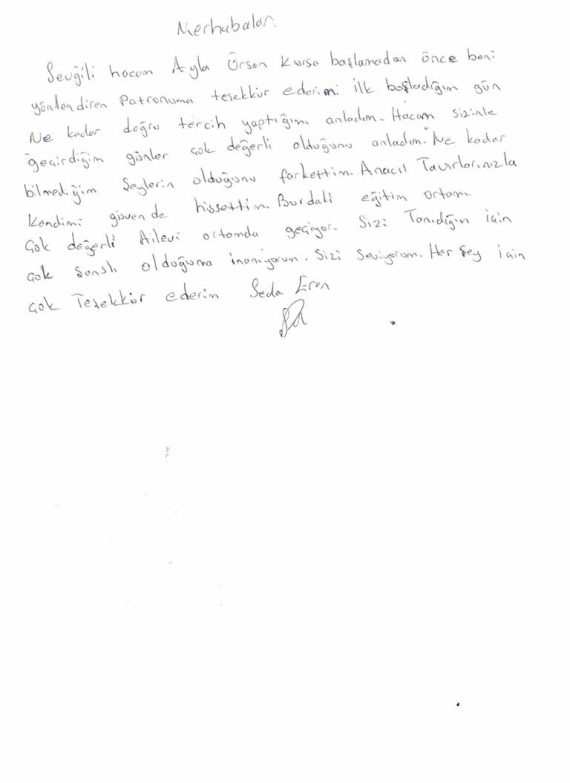 Merhabalar.
Sevgili hocam Ayla Ürsen Kursa başlamadan önce beni
yönlendiren Patronuma teşekkür ederimi ilk başladığım gün
Ne kadar doğru tercih yaptığımı anladım. Hocam sizinle
geçirdiğim günler çok değerli olduğunu anladım. Ne kadar
bilmediğim şeylerin olduğunu farkettim. Anacıl Tavırlarınızla
Kendimi güvende hissettim. Burdaki eğitim ortamı
Çok değerli Ailevi ortamda geçiyor. Sizi Tanıdığım için
çok şanslı olduğuma inanıyorum. Sizi Seviyorum. Her şey için
çok Teşekkür ederim Seda Eren